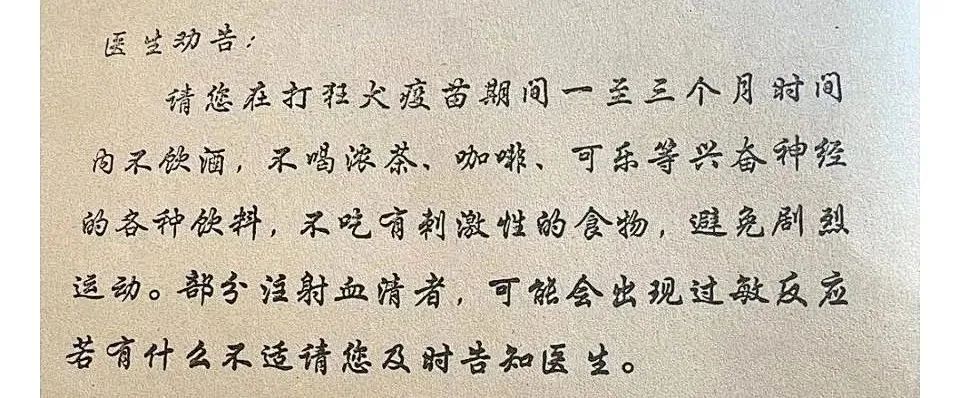 医生劝告：
请您在打狂犬疫苗期间一至三个月时间
内不饮酒，不喝浓茶、咖啡、可乐等兴奋神经
的各种饮料，不吃有刺激性的食物，避免剧烈
运动。部分注射血清者，可能会出现过敏反应
若有什么不适请您及时告知医生。